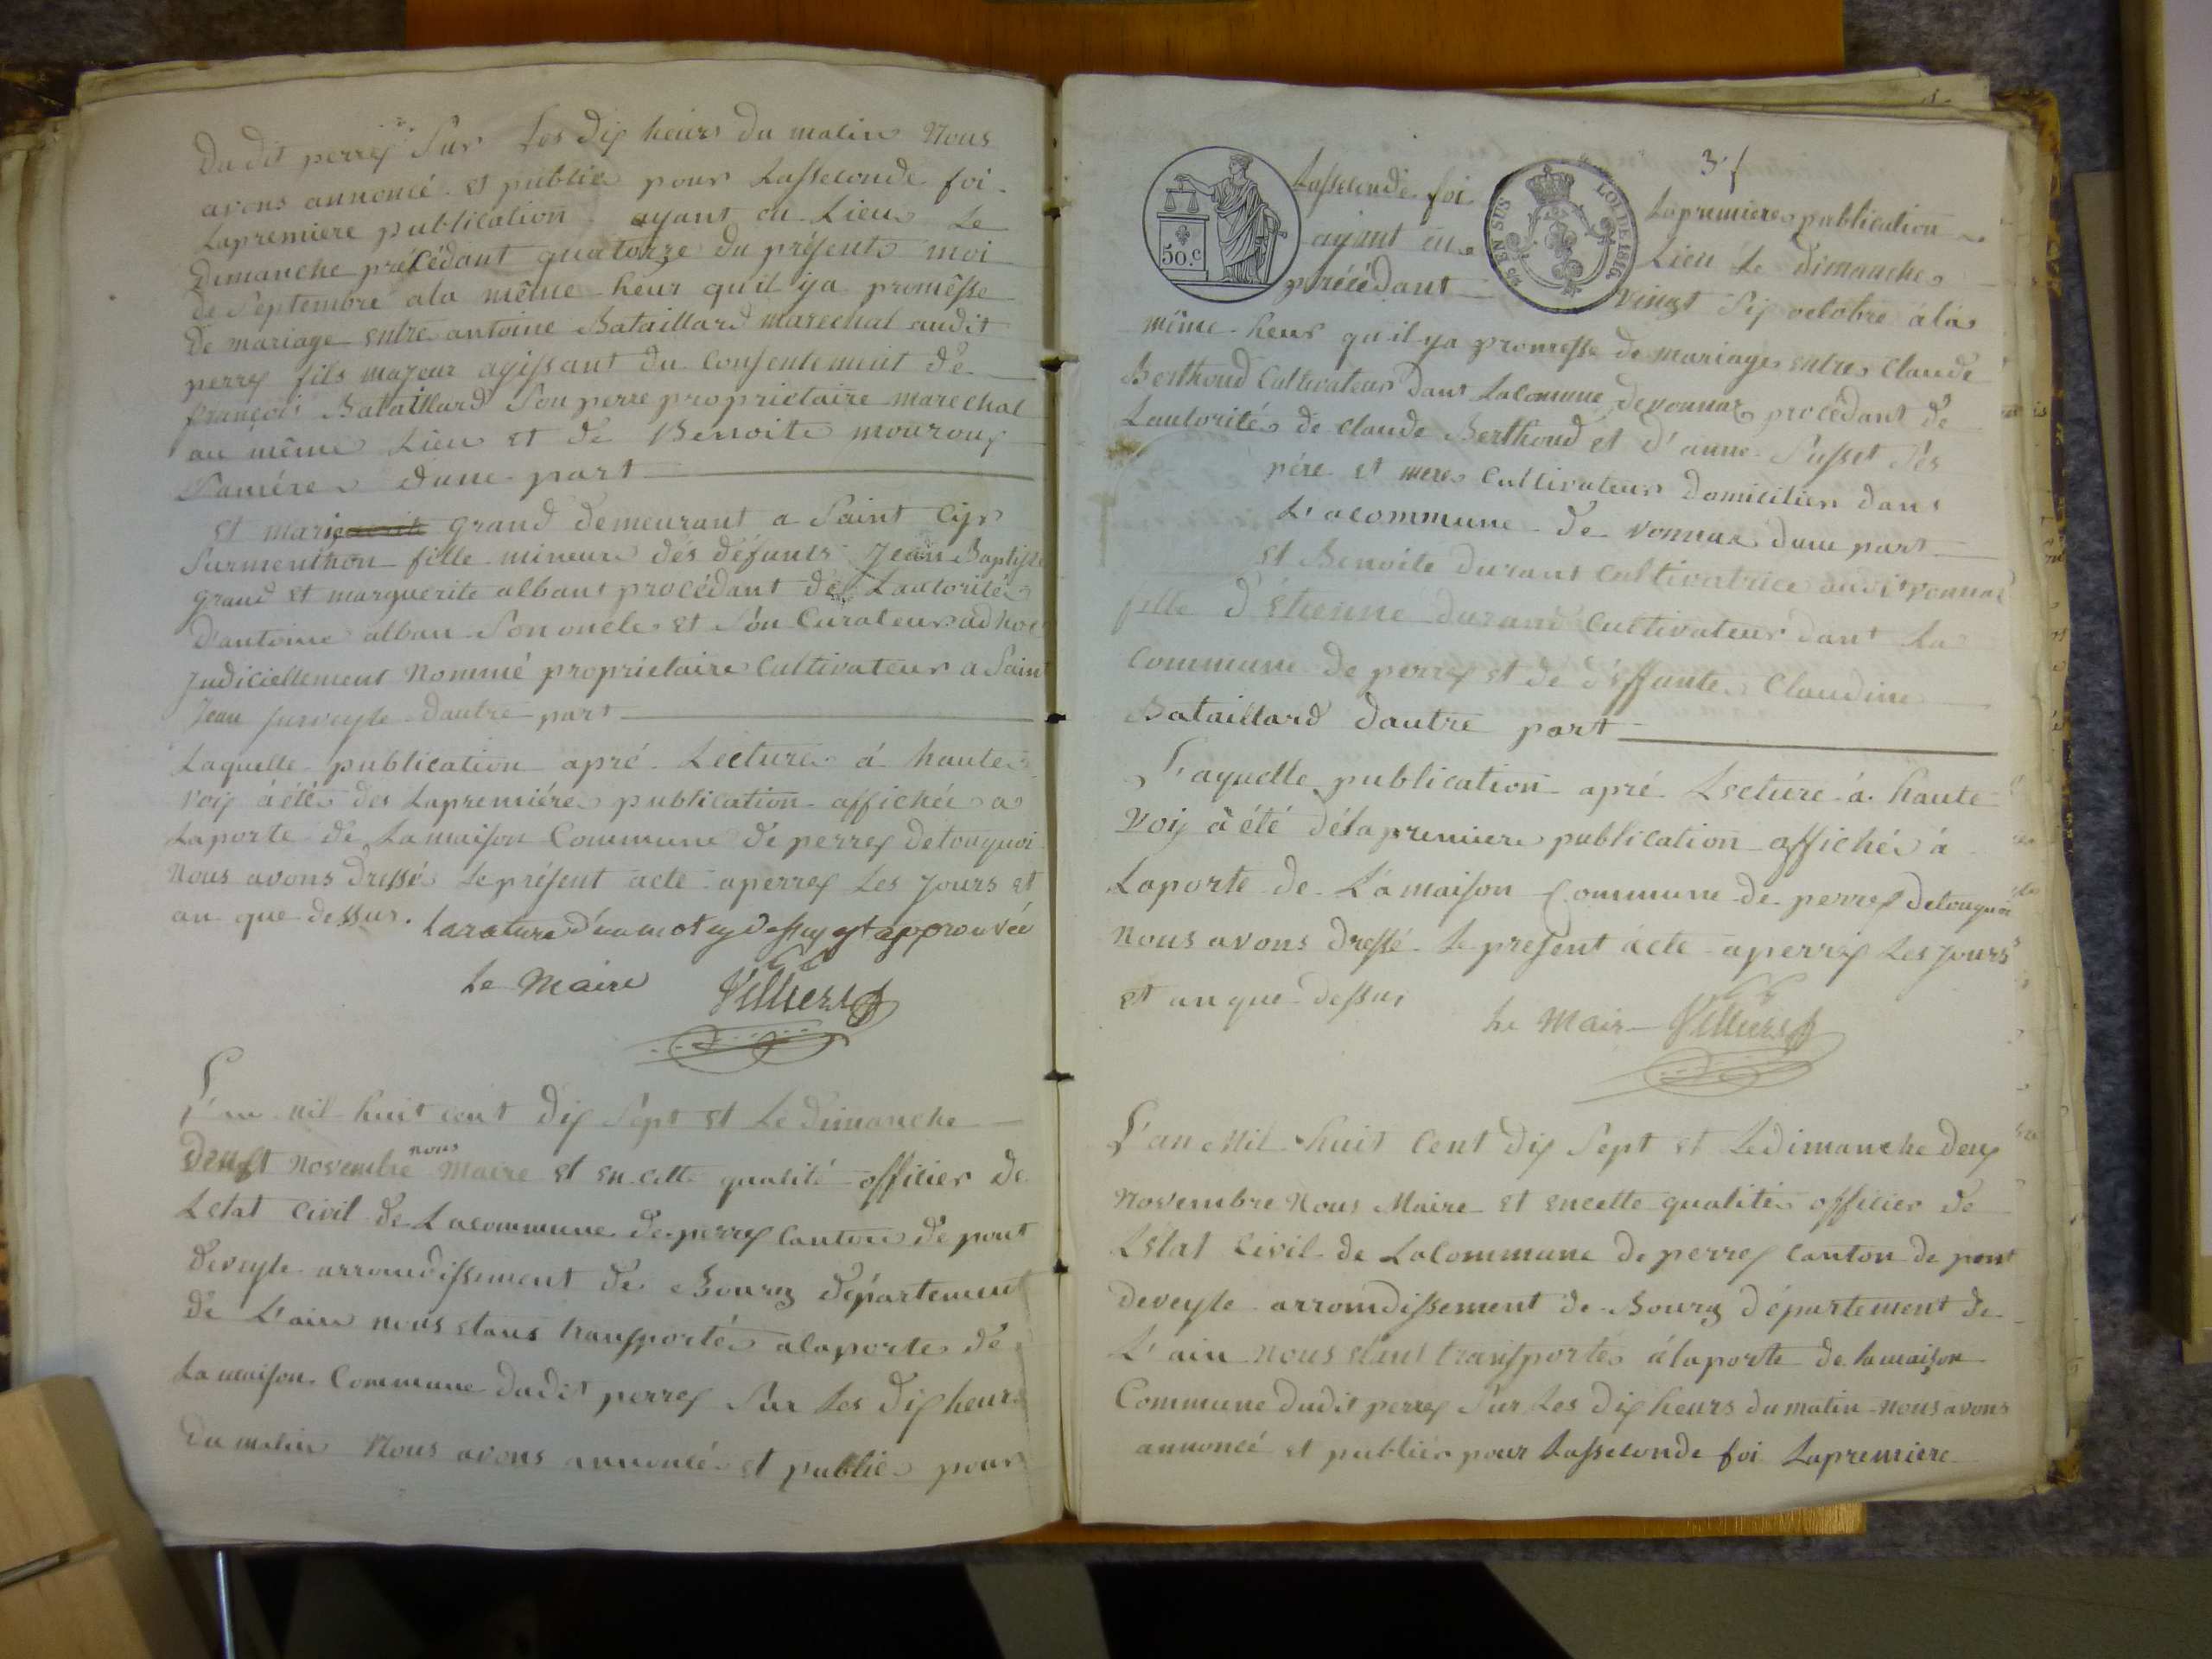 Du dit perrex sur les dix heurs du matin Nous
avons annoncé et publié pour Lasseconde foi
Lapremiere publication ayant eu Lieu Le
Dimanche précédant quatorze du présent moi
de Septembre ala même heur qu'il ya promesse
De mariage entre antoine Bataillard marechal audit
perrex fils majeur agissant du Consentement de
françois Bataillard Son perre proprietaire marechal
au même Lieu et de Benoite mouroux
Samére dune part
Et marie Grand demeurant a Saint Cyr
Surmenthon fille mineure dés défunts Jean Baptiste
Grand et marguerite alban procédant de Lautorité
d'antoine alban Son oncle et Son Curateur adhoc
Judiciellement Nommé proprietaire Cultivateur a Saint
Jean surveyle dautre part
Laquelle publication apré Lecture á haute
voix á été des Lapremiére publication affichée a
Laporte de Lamaison Commune de perrex detouquoi
Nous avons dressé Leprésent acte aperrex Les Jours et
an que dessus. Larature d'un mot cy dessus est approuvée
Le Maire Villiers
L'an mil huit cent dix Sept et Le dimanche
Deux Novembre nous Maire et en cette qualité officier de
Letat Civil de Lacommune de perrex Canton de pont
deveyle arrondissement de Bourg département
de L'ain nous etans transporté alaporte de
Lamaison Commune dudit perrex Sur Les dix heurs
du matin Nous avons annoncé et publié pour
3.f
50.c
25 EN SUS
LOI DE 1816.
Lasseconde foi Lapremiere publication
ayant eu Lieu Le Dimanche
précédant vingt Six octobre ála
même heur qu'il ya promesse de mariage entre Claude
Berthoud Cultivateur dans Lacomune devonnaz procédant de
Lautorité de Claude Berthoud et d'anne Susset Sés
pére et mere Cultivateur domicilier dans
L'acommune de vonnaz dune part
Et Benoite Durant Cultivatrice audit vonnaz
fille d'étienne durand Cultivateur dant La
Commune de perrex et de déffunte Claudine
Bataillard dautre part
L'aquelle publication apré Lecture á haute
Voix á été délapremiere publication affiché á
Laporte de L'amaison Commune de perrex detouquoi
Nous avons dressé Le present acte aperrex Les Jours
et an que dessus
Le Mair Villiers
L'an Mil huit Cent dix Sept et Ledimanche deux
Novembre Nous Maire et encette qualité officier de
Létat Civil de LaCommune de perrex Canton de pont
deveyle arromdissement de Bourg département de
L'ain nous étant transporté álaporte de lamaison
Commune dudit perrex Sur Les dix heurs du matin nous avons
annoncé et publié pour Lasseconde foi Lapremiere